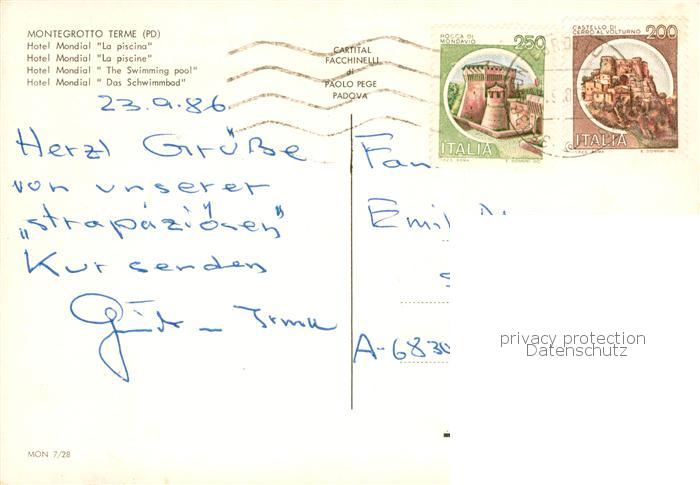 MONTEGROTTO TERME (PD)
Hotel Mondial "La piscina"
Hotel Mondial "La piscine"
Hotel Mondial " The Swimming pool"
Hotel Mondial " Das Schwimmbad"
CARTITAL
FACCHINELLI
di
PAOLO PEGE
PADOVA
ROCCA DI
MONDAVIO
250
ITALIA
CASTELLO DI
CERRO AL VOLTURNO
200
ITALIA
23.9.86
Herzl Grüße
von unserer
„strapaziösen"
Kur senden
Irma
Fam.
A-6830
privacy protection
Datenschutz
MON 7/28